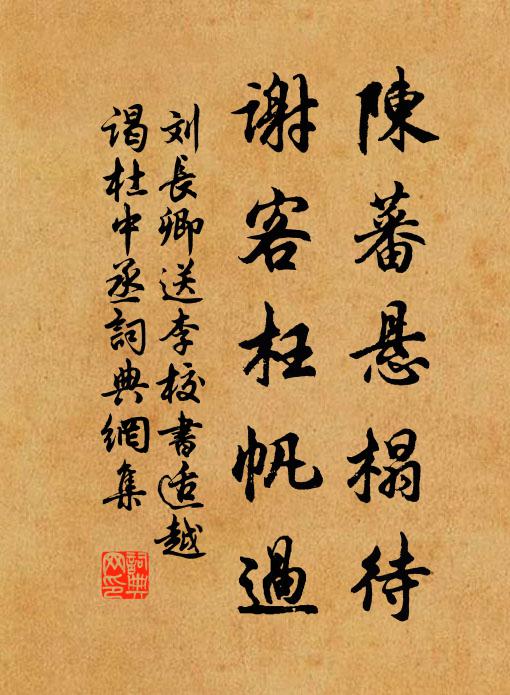 陳蕃悬榻待
谢客枉帆過
刘長卿送李校書适越
谒杜中丞詞典網集
詞典
网印